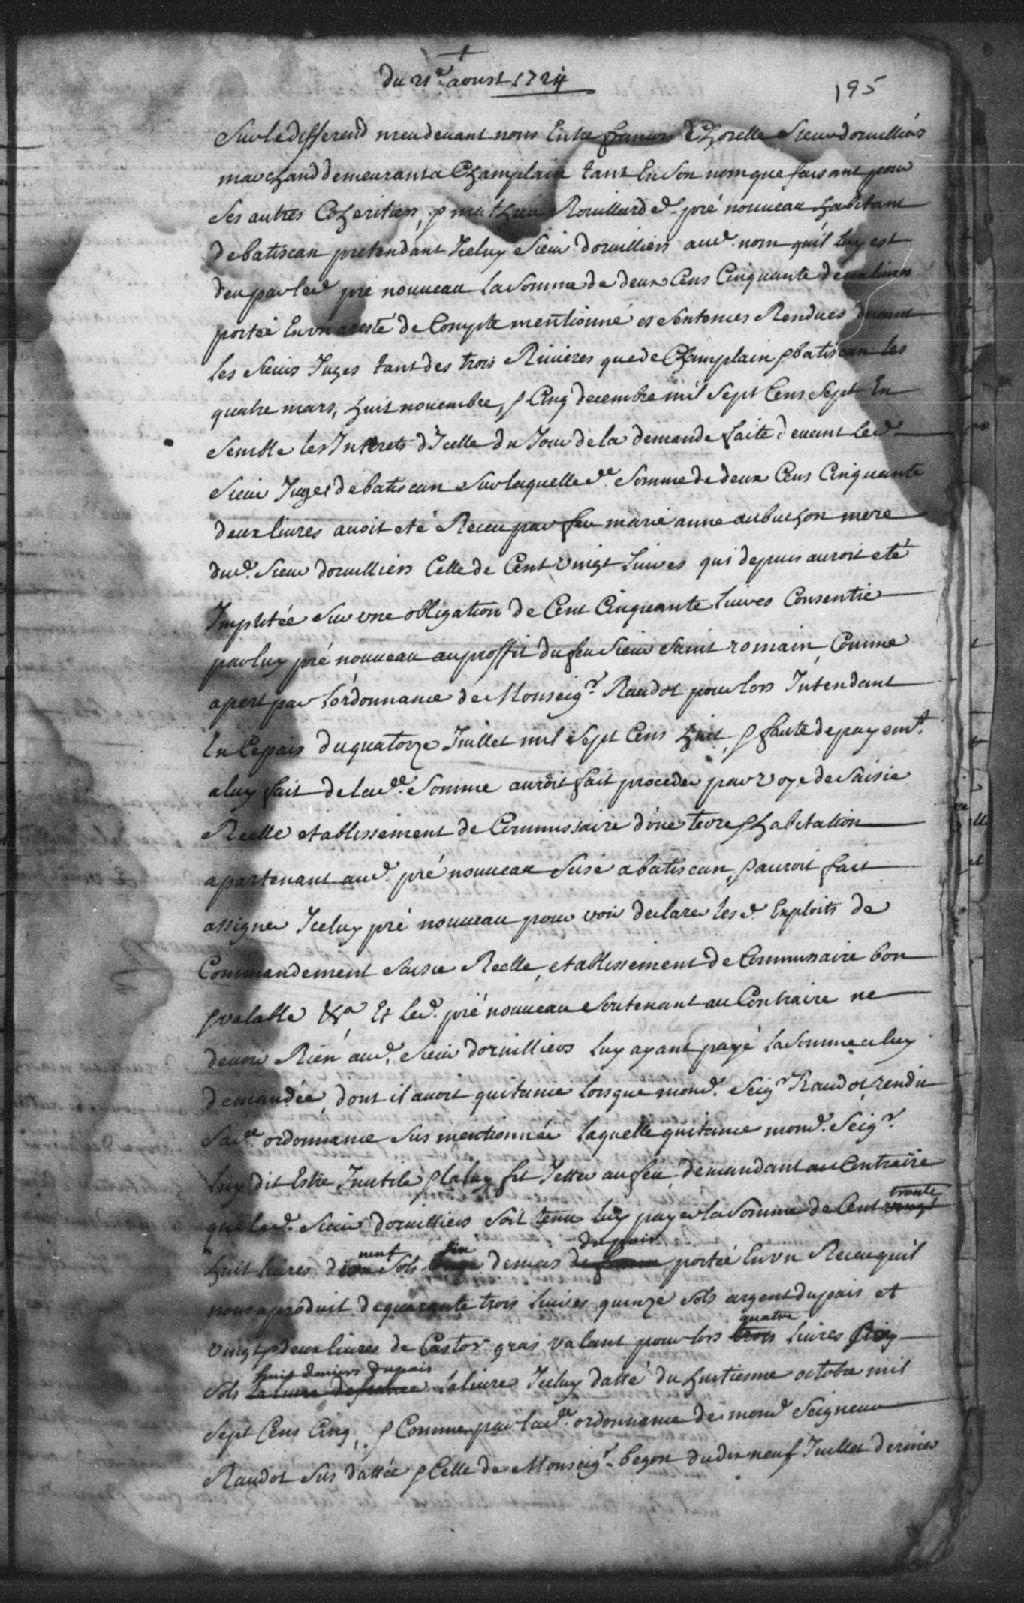 du 21e. aoust 1724
195
Sur le differend meu devant nous Entre françois Chorelle Sieur dorvilliers
marchand demeurant a Champlain tant En Son nom que faisant pour
Ses autres Coheritiers, & mathieu Rouillard d. pré nouveau habitant
de batiscan pretendant Iceluy Sieur dorvilliers aud. nom qu'il luy est
deu par led. pré nouveau la Somme de deux Cens Cinquante deux livres
portée En un aresté de Compte mentionné es Sentences Rendues devant
les Sieurs Juges tant des trois Rivieres que de Champlain & batiscan les
quatre mars, huit novembre, & Cinq decembre mil Sept Cens Sept En
Semble les Interets d'Icelle du Jour de la demande faite devant led.
Sieur Juge de batiscan Sur laquelle de. Somme de deux Cens Cinquante
deux livres avoit eté Receu par feu marie anne aubuchon mere
dud. Sieur dorvilliers Celle de Cent vingt livres qui depuis auroit eté
Imputée Sur une obligation de Cent Cinquante livres Consentie
par luy pré nouveau au proffit du feu Sieur Saint romain, Comme
apert par l'ordonnance de Monseigr. Raudot pour lors Intendant
En Ce païs du quatorze Juillet mil Sept Cens huit, & faute de payemt.
a luy fait de lade. Somme auroit fait proceder par voye de Saisie
Reelle etablissement de Commissaire d'une terre & habitation
apartenant aud. pré nouveau Sise a batiscan, & auroit fait
assigner Iceluy pré nouveau pour voir declarer lesd. Exploits de
Commandement Saisie Reelle, etablissement de Commissaire bon
& valable &a. Et led. pré nouveau Soutenant au Contraire ne
devoir Rien aud. Sieur dorvilliers luy ayant payé la Somme a luy
demandée, dont il avoit quitance lorsque mond. Seigr. Raudot rendit
Sade. ordonnance Susmentionnée laquelle quitance mond. Seigr.
luy dit Estre Inutile & la luy fit Jetter au feu demandant au Contraire
que led. Sieur dorvilliers Soit tenu luy payer la Somme de Cent vingt trente
huit livres neuf Sols Six deniers du païs portée En un Receu qu'il
nous a produit de quarante trois livres quinze Sols argent du païs et
vingt deux livres de Castor gras valant pour lors trois quatre livres Cinq
Sols huit deniers du païs la livre Iceluy datté du huitieme octobre mil
Sept Cens Cinq, & Comme par lade. ordonnance de mond. Seigneur
Raudot Sus dattée & Celle de Monseigr. begon du dix neuf Juillet dernier